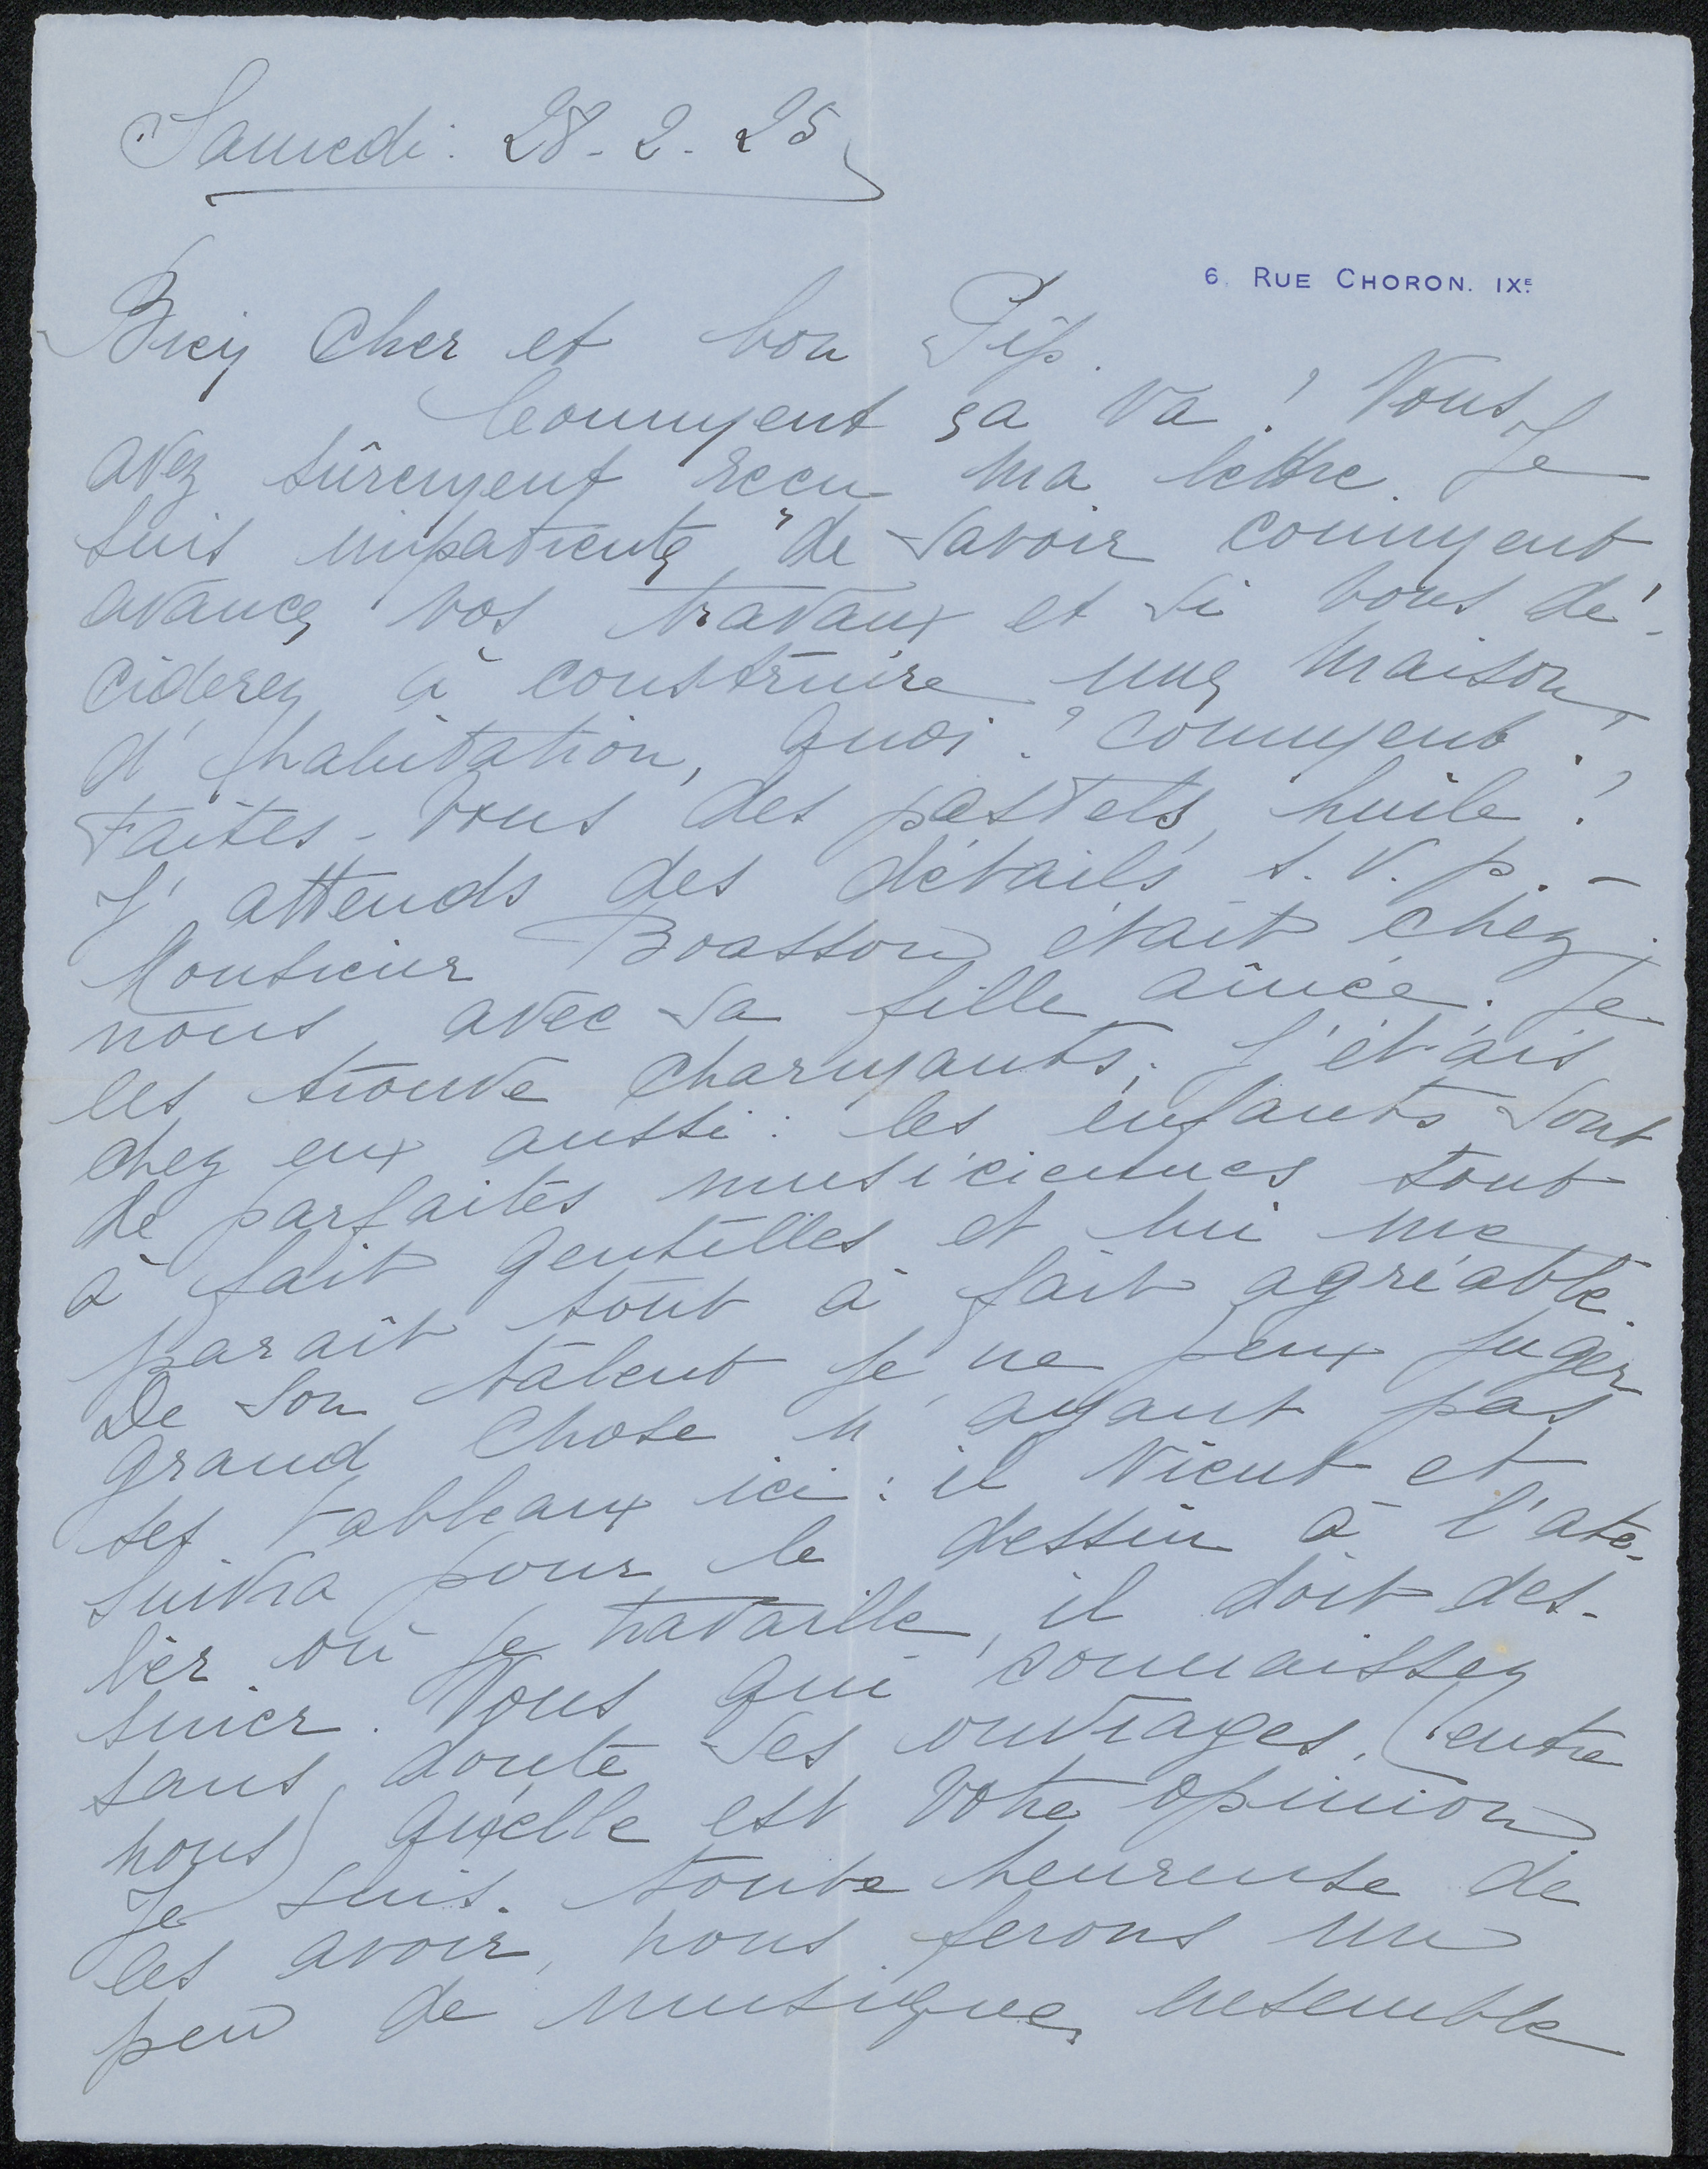 Samedi. 28-2-25
6, RUE CHORON. IXE.
Bien cher et bon Pip.
Comment ça va? Vous
avez sûrement reçu ma lettre. Je
suis impatiente de savoir comment
avance vos travaux et si vous dé-
ciderez à construire une maison
d'habitation, quoi? comment?
Faites-vous des pastels, huile?
J'attends des détails s.v.p. -
Monsieur Boasson était chez
nous avec sa fille aînée. Je
les trouve charmants. J'étais
chez eux aussi: les enfants sont
de parfaites musiciennes tout
à fait gentilles et lui me
parait tout à fait agréable.
De son talent je ne peux juger
grand chose n'ayant pas
ses tableaux ici: il vient et
suivra pour le dessin à l'ate-
lier où je travaille, il doit des-
siner. Vous qui connaissez
sans doute ses ouvrages, (entre
nous) quelle est votre opinion
Je suis toute heureuse de
les avoir, nous ferons un
peu de musique ensemble